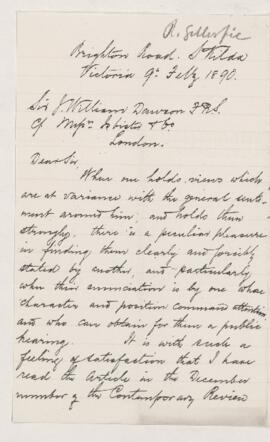 R. Gillespie
Brighton Road. St Kilda
Victoria 9th Feby 1890.
Sir J. William Dawson F.R.S.
C/ Messrs Nisbet & Co
London.
Dear Sir,
When one holds views which
are at variance with the general senti-
ment around him, and holds them
strongly, there is a peculiar pleasure
in finding them clearly and forcibly
stated by another, and particularly
when their annunciation is by one whose
character and position command attention
and who can obtain for them a public
hearing. It is with such a
feeling of satisfaction that I have
read the Article in the December
number of the Contemporary Review